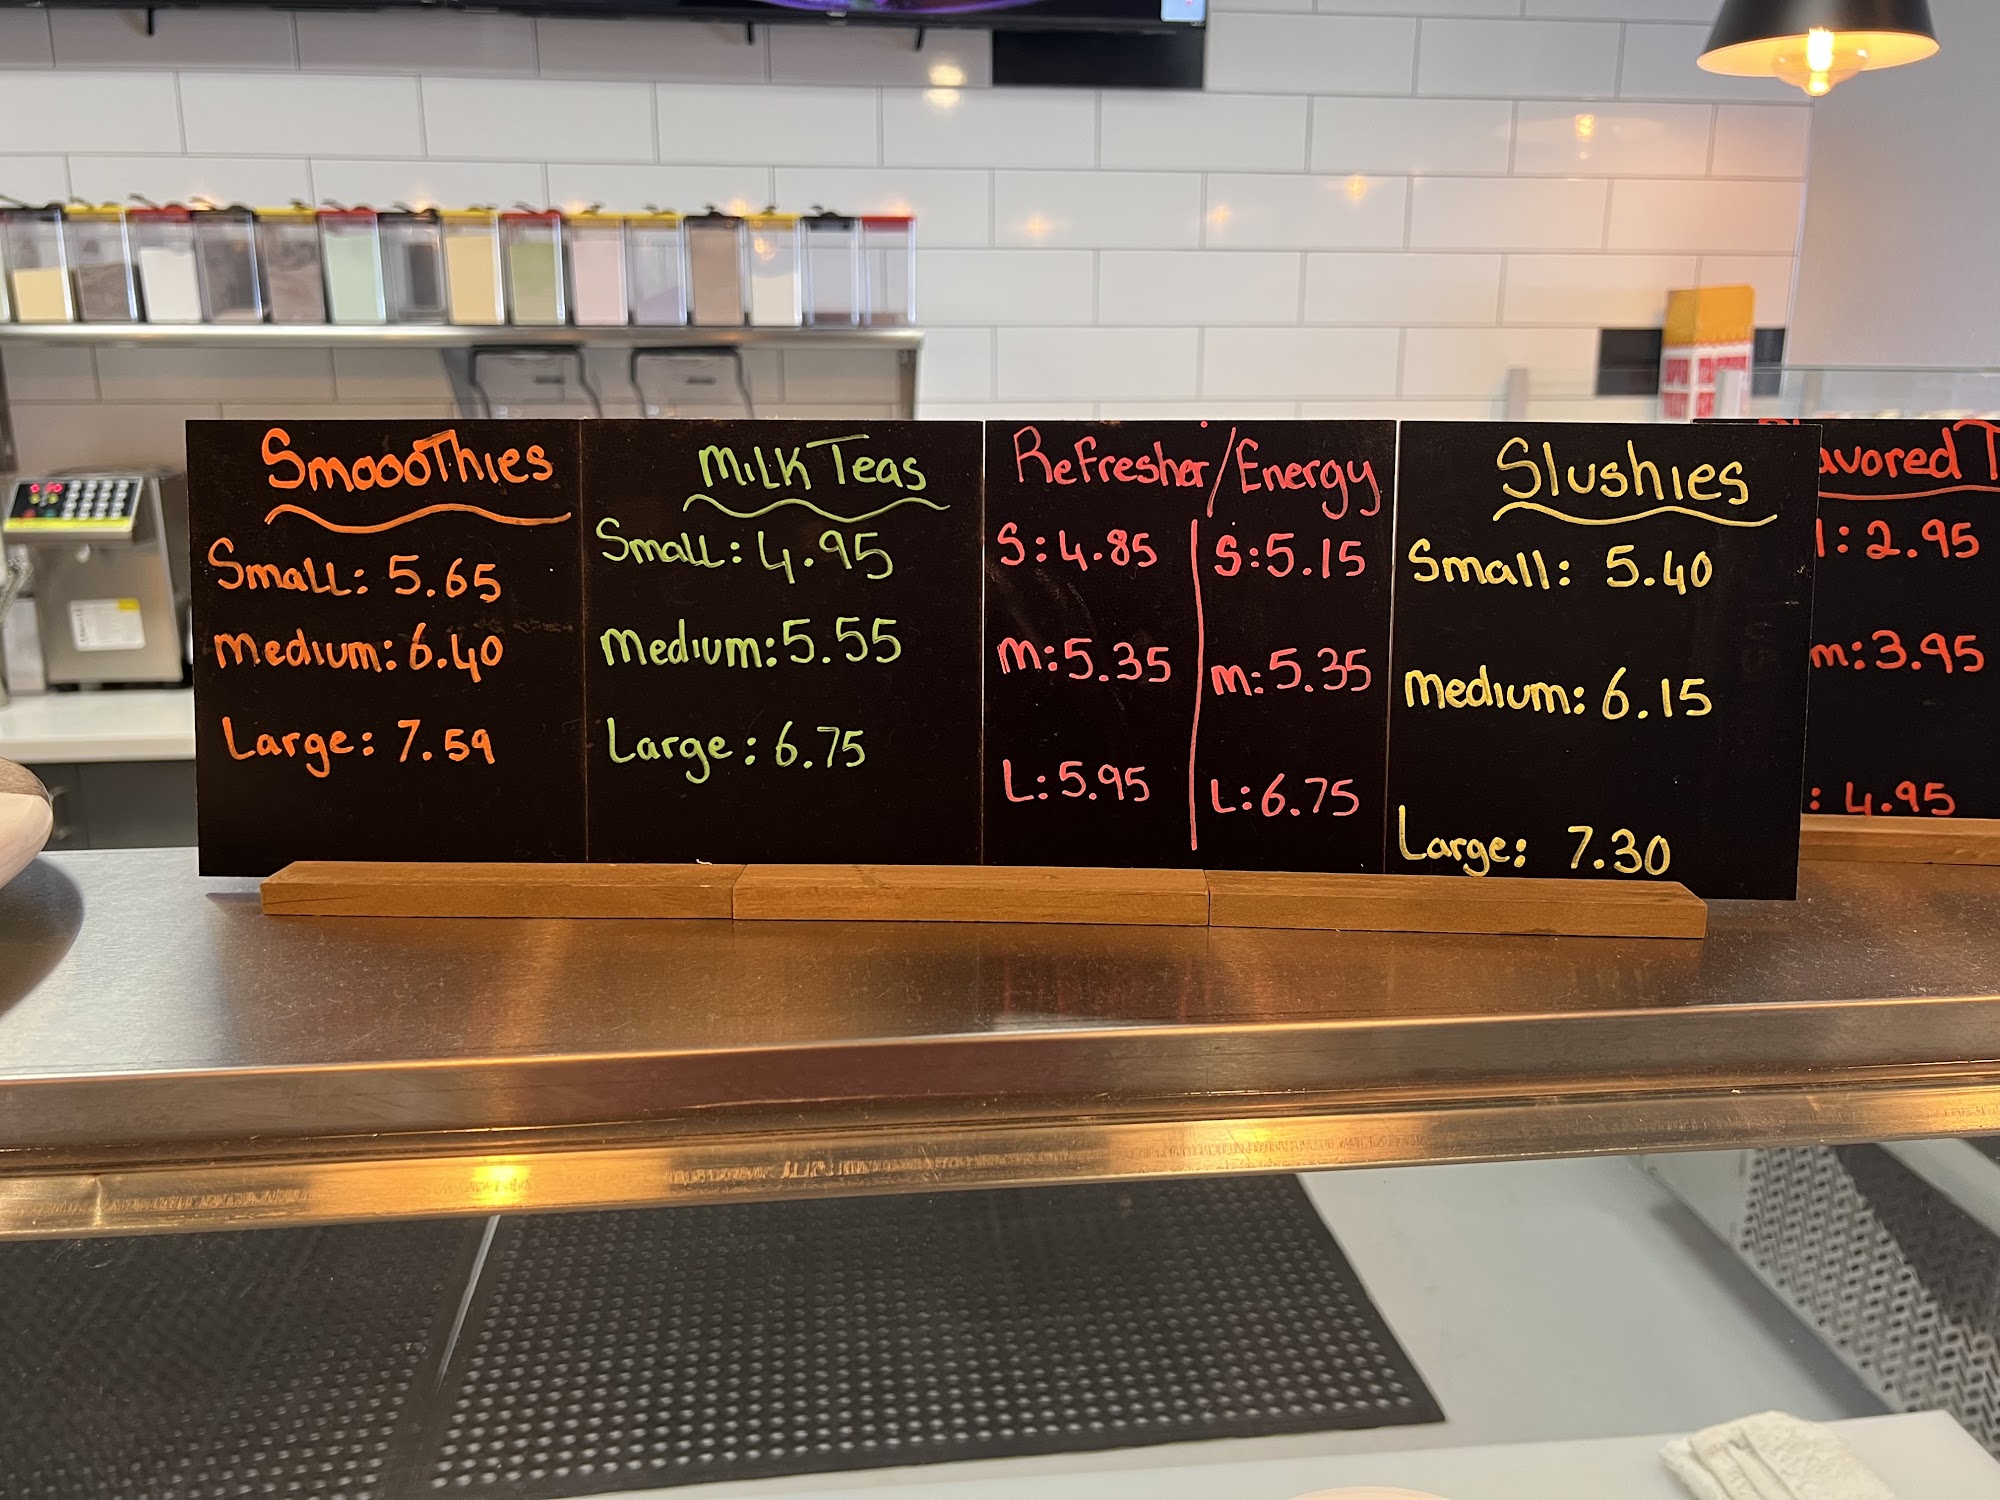 SmoooThies
Small: 5.65
Medium: 6.40
Large: 7.59
Milk Teas
Small: 4.95
Medium: 5.55
Large: 6.75
Refresher/Energy
S: 4.85
M: 5.35
L: 5.95
S: 5.15
M: 5.35
L: 6.75
Slushies
Small: 5.40
Medium: 6.15
Large: 7.30
avored T
l: 2.95
m: 3.95
: 4.95